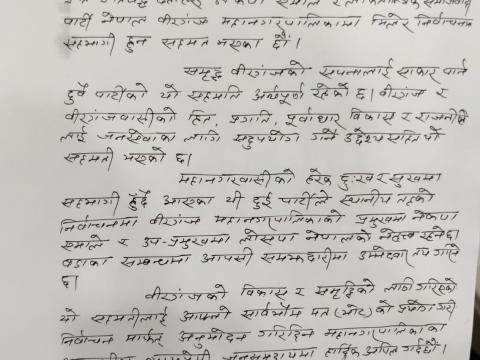 पार्टी नेपाल वीरगंज महानगरपालिकामा मिलेर निर्वाचनमा
सहभागी हुन सहमत भएका छौं।
समृद्ध वीरगंजको सपनालाई साकार पार्न
दुवै पार्टीको यो सहमति अर्थपूर्ण रहेको छ। वीरगंज र
वीरगंजवासीको हित, प्रगति, पूर्वाधार विकास र राजनीति
लाई जनसेवाका लागि सदुपयोग गर्ने उद्देश्य सहित यो
सहमती भएको छ।
महानगरवासीको हरेक दुःख र सुखमा
सहभागी हुँदै आएका यी दुई पार्टीले स्थानीय तहको
निर्वाचनमा वीरगंज महानगरपालिकाको प्रमुखमा नेकपा
एमाले र उप-प्रमुखमा लोसपा नेपालको नेतृत्व रहनेछ।
वडाका सम्बन्धमा आपसी समझदारीमा उम्मेदवार तय गरिने
छ।
वीरगंजको विकास र समृद्धिको लागि गरिएको
यो सहमतीलाई आफ्नो सार्वभौम मत (भोट) को प्रयोग गरी
निर्वाचन मार्फत् अनुमोदन गरिदिन महानगरपालिकाका
हार्दिक अपिल गर्दछौं।